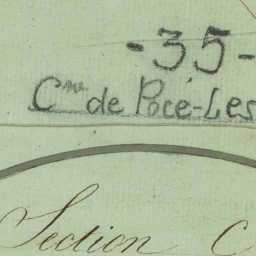 -35-
Cne de Pocé-Les
Section C